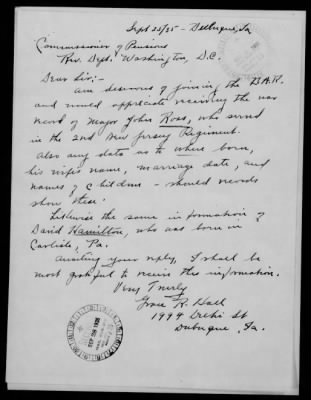 Sept 25/25 - Dubuque, Ia
Commissioner of Pensions
Rev. Dept. Washington, D.C.
Dear Sir:-
Am desirous of joining the D.A.R.
and would appreciate receiving the war
record of Major John Ross, who served
in the 2nd New Jersey Regiment.
Also any data as to where born,
his wife's name, marriage date, and
names of children - should records
show these.
Likewise the same information of
David Hamilton, who was born in
Carlisle, Pa.
Awaiting your reply, I shall be
most grateful to receive the information.
Very Truly
Grace R. Hall
1999 Delhi St
Dubuque, Ia.
SEP 28 1925